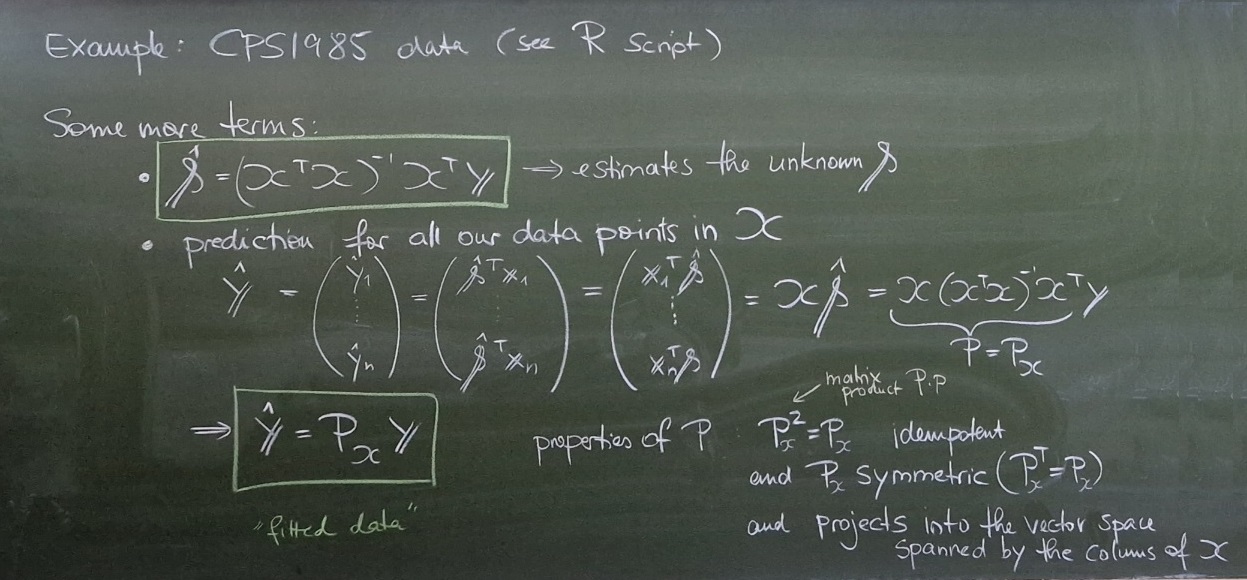 Example: CPS1985 data (see R Script)
Some more terms:
• β̂ = (𝒳ᵀ𝒳)⁻¹ 𝒳ᵀ Y ⇒ estimates the unknown β
• prediction for all our data points in 𝒳
Ŷ = (ŷ₁ ⋮ ŷₙ) = (β̂ᵀx₁ ⋮ β̂ᵀxₙ) = (x₁ᵀβ̂ ⋮ xₙᵀβ̂) = 𝒳β̂ = 𝒳(𝒳ᵀ𝒳)⁻¹𝒳ᵀY
P = P𝒳
matrix
product P·P
⇒ Ŷ = P𝒳 Y properties of P P𝒳² = P𝒳 idempotent
and P𝒳 symmetric (P𝒳ᵀ = P𝒳)
"fitted data"
and projects into the vector space
spanned by the colums of 𝒳